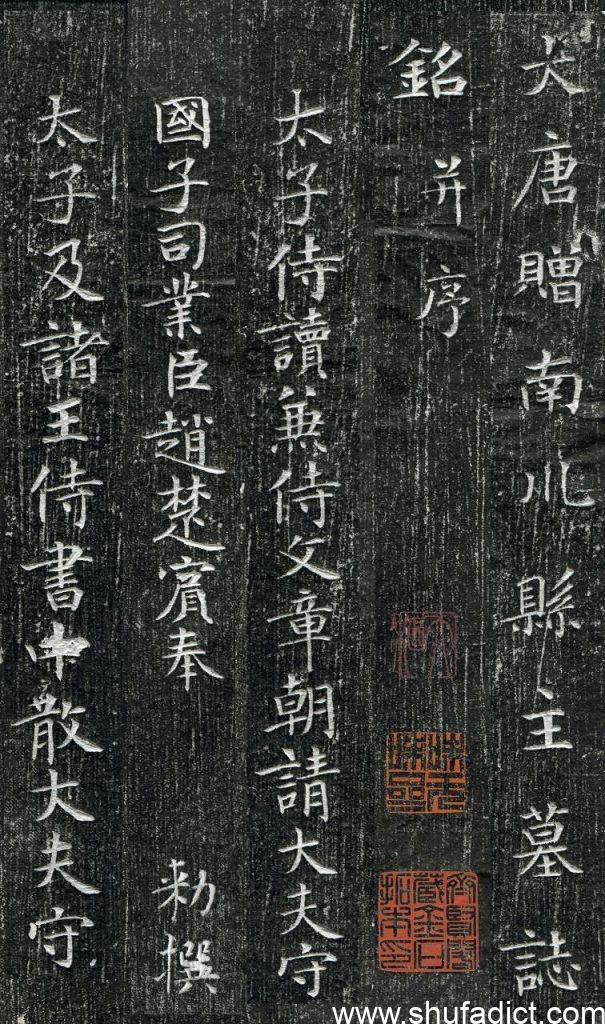 大唐贈南川縣主墓誌
銘并序
太子侍讀兼侍文章朝請大夫守
國子司業臣趙楚賓奉
勑撰
太子及諸王侍書中散大夫守
www.shufadict.com